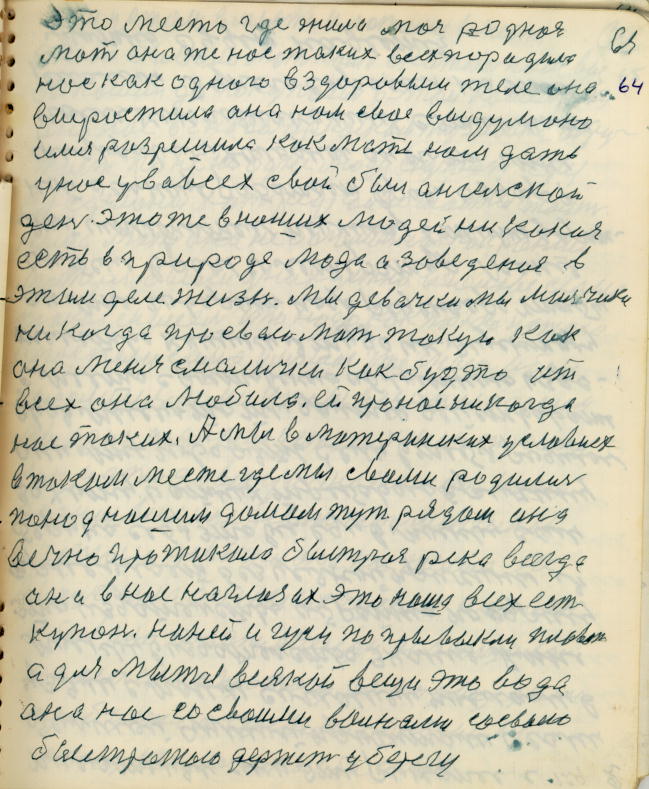 это место где жила моя родная 64
мать она же нас таких всех породила
нас как одного в здоровым теле она 64
выростила она нам свое выдумоно
имя розрешила как мать нам дать
у нас у вавсех свой был ангелской
ден. это же в наших людей ни какая
есть в природе мода а заведения в
этим деле жизн. мы девачки мы мальчики
ни когда про сваю мать такую как
она меня смалички как будто от
всех она любила. ей про нас никогда
нас таких. А мы в материнских условиех
в таком месте где мы свами родилися
под нашим домом тут рядом она
вечно протикала быстрая река всегда
она в нас на глазах это наша всех ест
купон. на ней и гуси по привыкли плават
а для мытья всякой вещи это вода
она нас со своими волнами со своею
быстротою держит у берегу